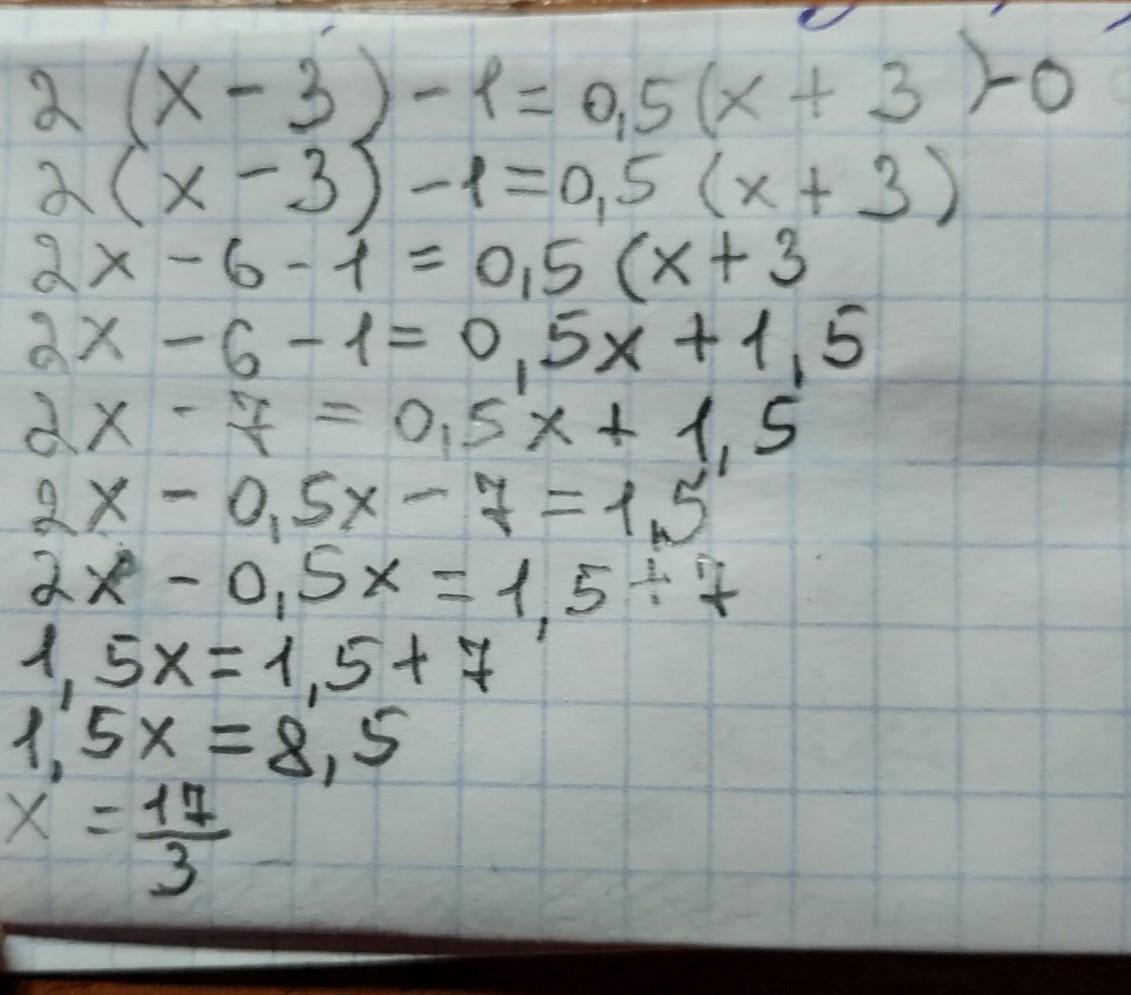 2(x-3)-1=0,5(x+3)-0
2(x-3)-1=0,5(x+3)
2x-6-1=0,5(x+3
2x-6-1=0,5x+1,5
2x-7=0,5x+1,5
2x-0,5x-7=1,5
2x-0,5x=1,5+7
1,5x=1,5+7
1,5x=8,5
x=17/3